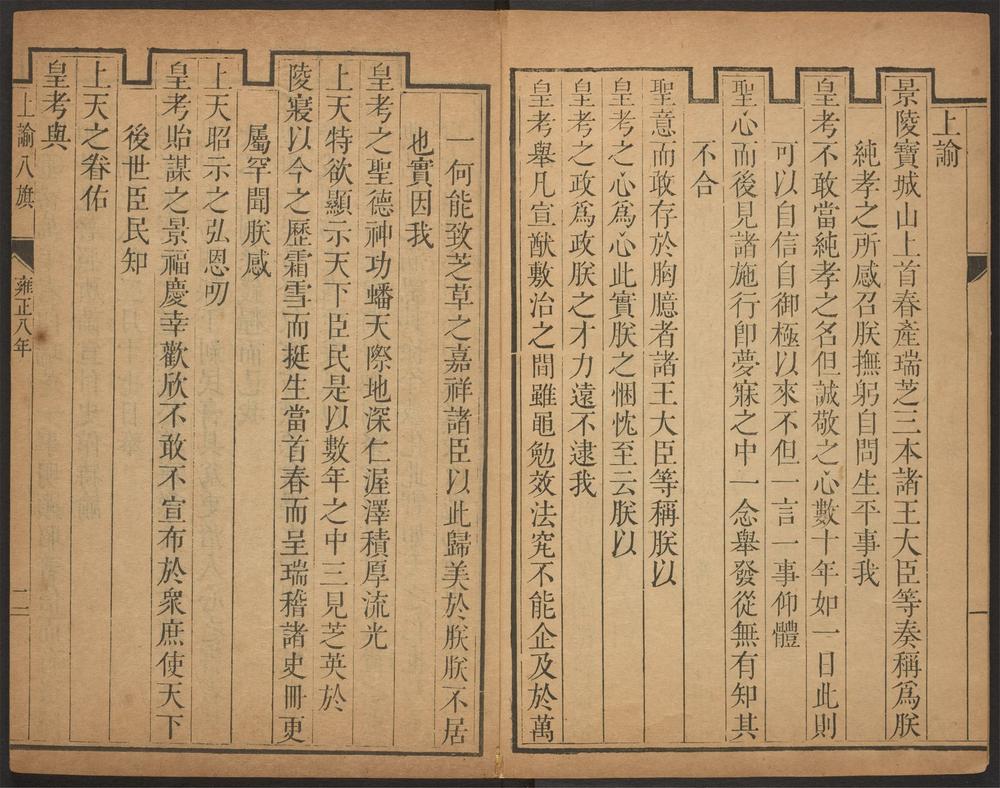 上諭
景陵寶城山上首春產瑞芝三本諸王大臣等奏稱爲朕
純孝之所感召朕撫躬自問生平事我
皇考不敢當純孝之名但誠敬之心數十年如一日此則
可以自信自御極以來不但一言一事仰體
聖心而後見諸施行卽夢寐之中一念舉發從無有知其
不合
聖意而敢存於胸臆者諸王大臣等稱朕以
皇考之心爲心此實朕之悃忱至云朕以
皇考之政爲政朕之才力遠不逮我
皇考舉凡宣猷敷治之間雖黽勉效法究不能企及於萬
一何能致芝草之嘉祥諸臣以此歸美於朕朕不居
也實因我
皇考之聖德神功蟠天際地深仁渥澤積厚流光
上天特欲顯示天下臣民是以數年之中三見芝英於
陵寢以今之歷霜雪而挺生當首春而呈瑞稽諸史冊更
屬罕聞朕感
上天昭示之弘恩叨
皇考貽謀之景福慶幸歡欣不敢不宣布於衆庶使天下
後世臣民知
上天之眷佑
皇考與
上諭八旗
雍正八年
二